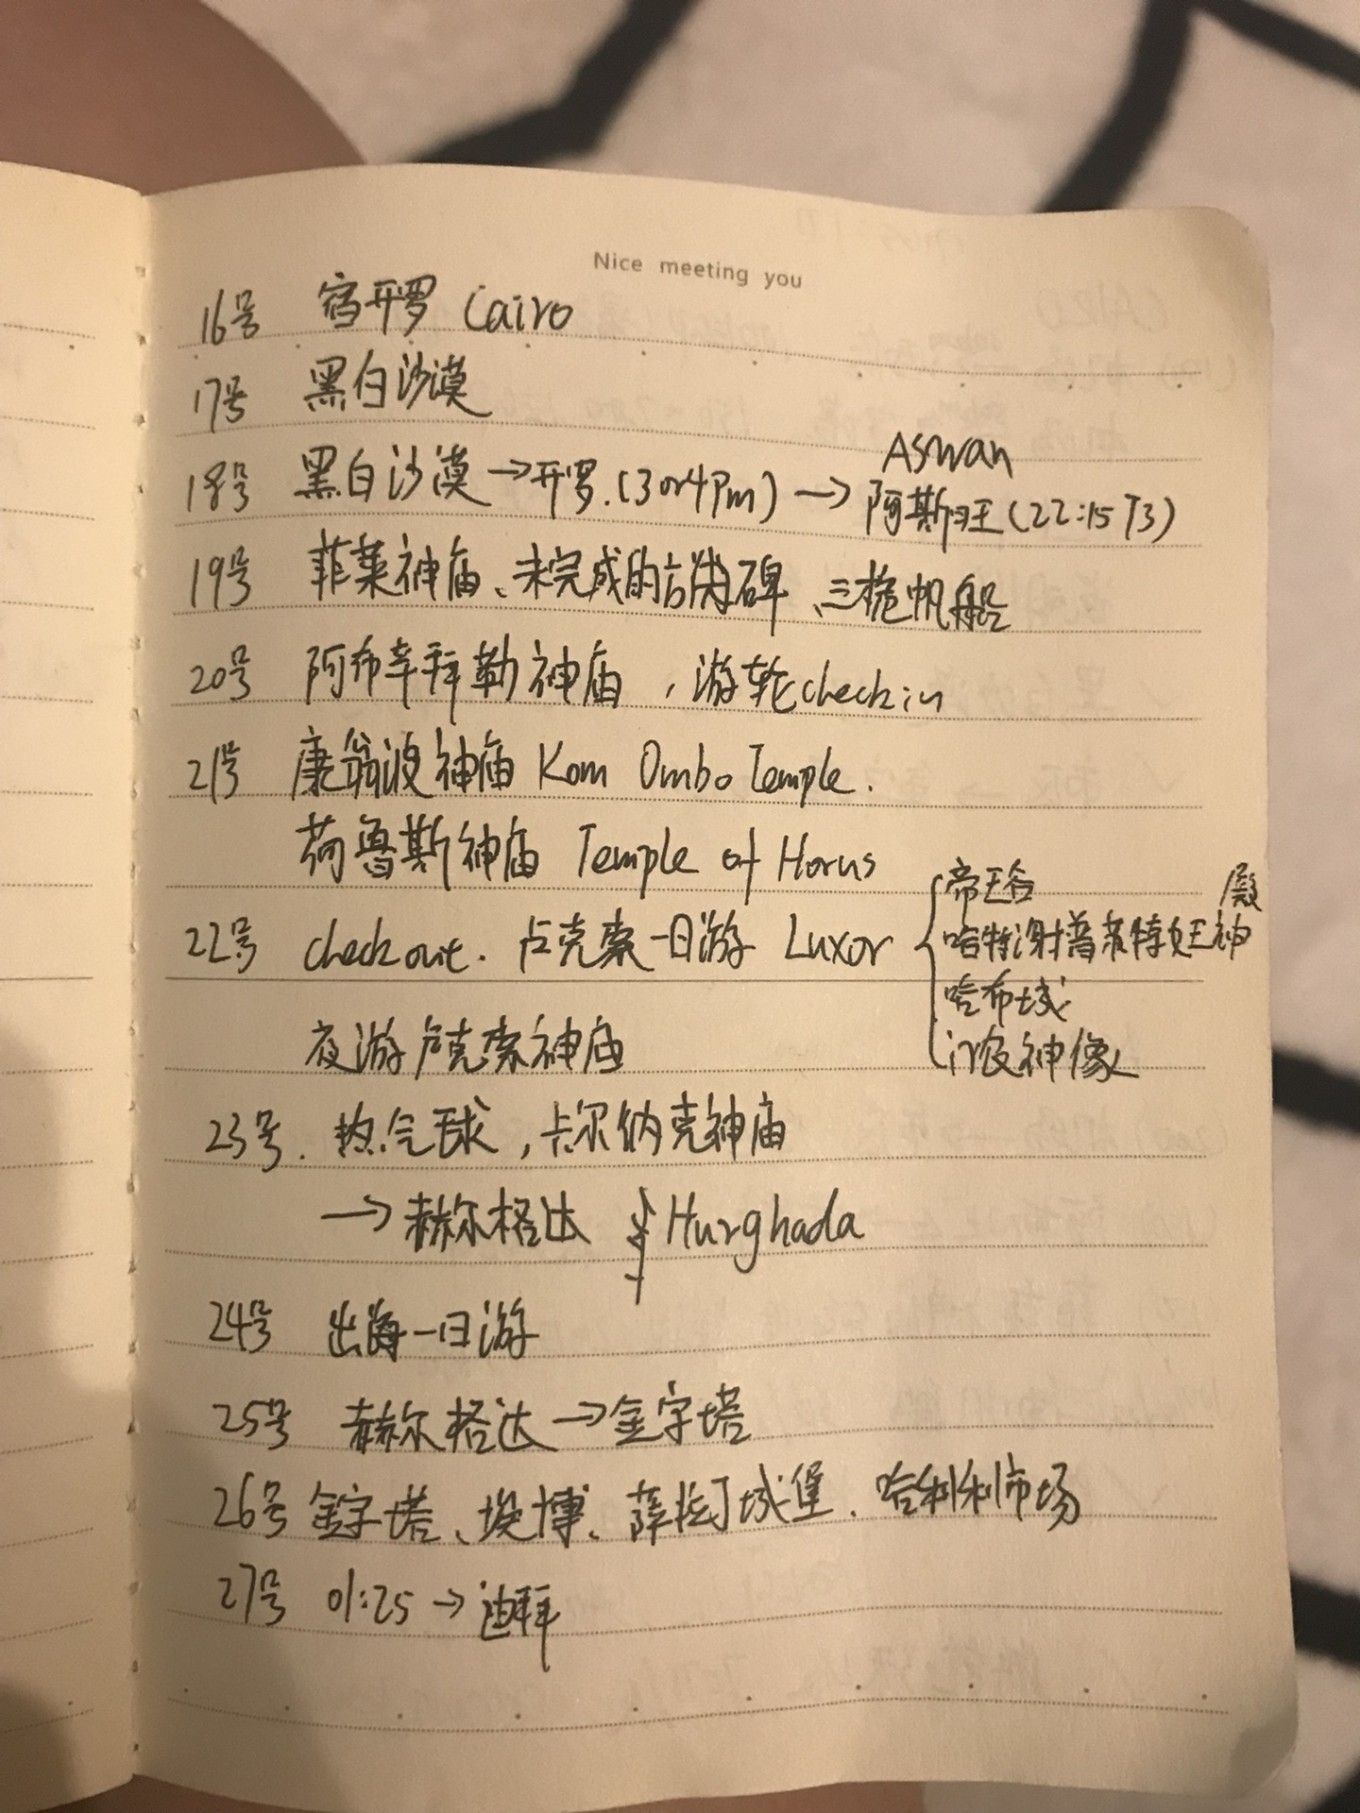 Nice meeting you
16号 宿开罗 Cairo
17号 黑白沙漠
Aswan
18号 黑白沙漠→开罗.(3or4Pm)→阿斯旺(22:15 T3)
19号 菲莱神庙、未完成的方尖碑、三桅帆船
20号 阿布辛拜勒神庙,游轮check in
21号 康翁波神庙 Kom Ombo Temple.
荷鲁斯神庙 Temple of Horus
22号 check out. 卢克索一日游 Luxor
帝王谷
哈特谢普苏特女王神殿
哈布城
门农神像
夜游卢克索神庙
23号. 热气球,卡尔纳克神庙
→赫尔格达 Hurghada
24号 出海一日游
25号 赫尔格达→金字塔
26号 金字塔、埃博、萨拉丁城堡、哈利利市场
27号 01:25→迪拜